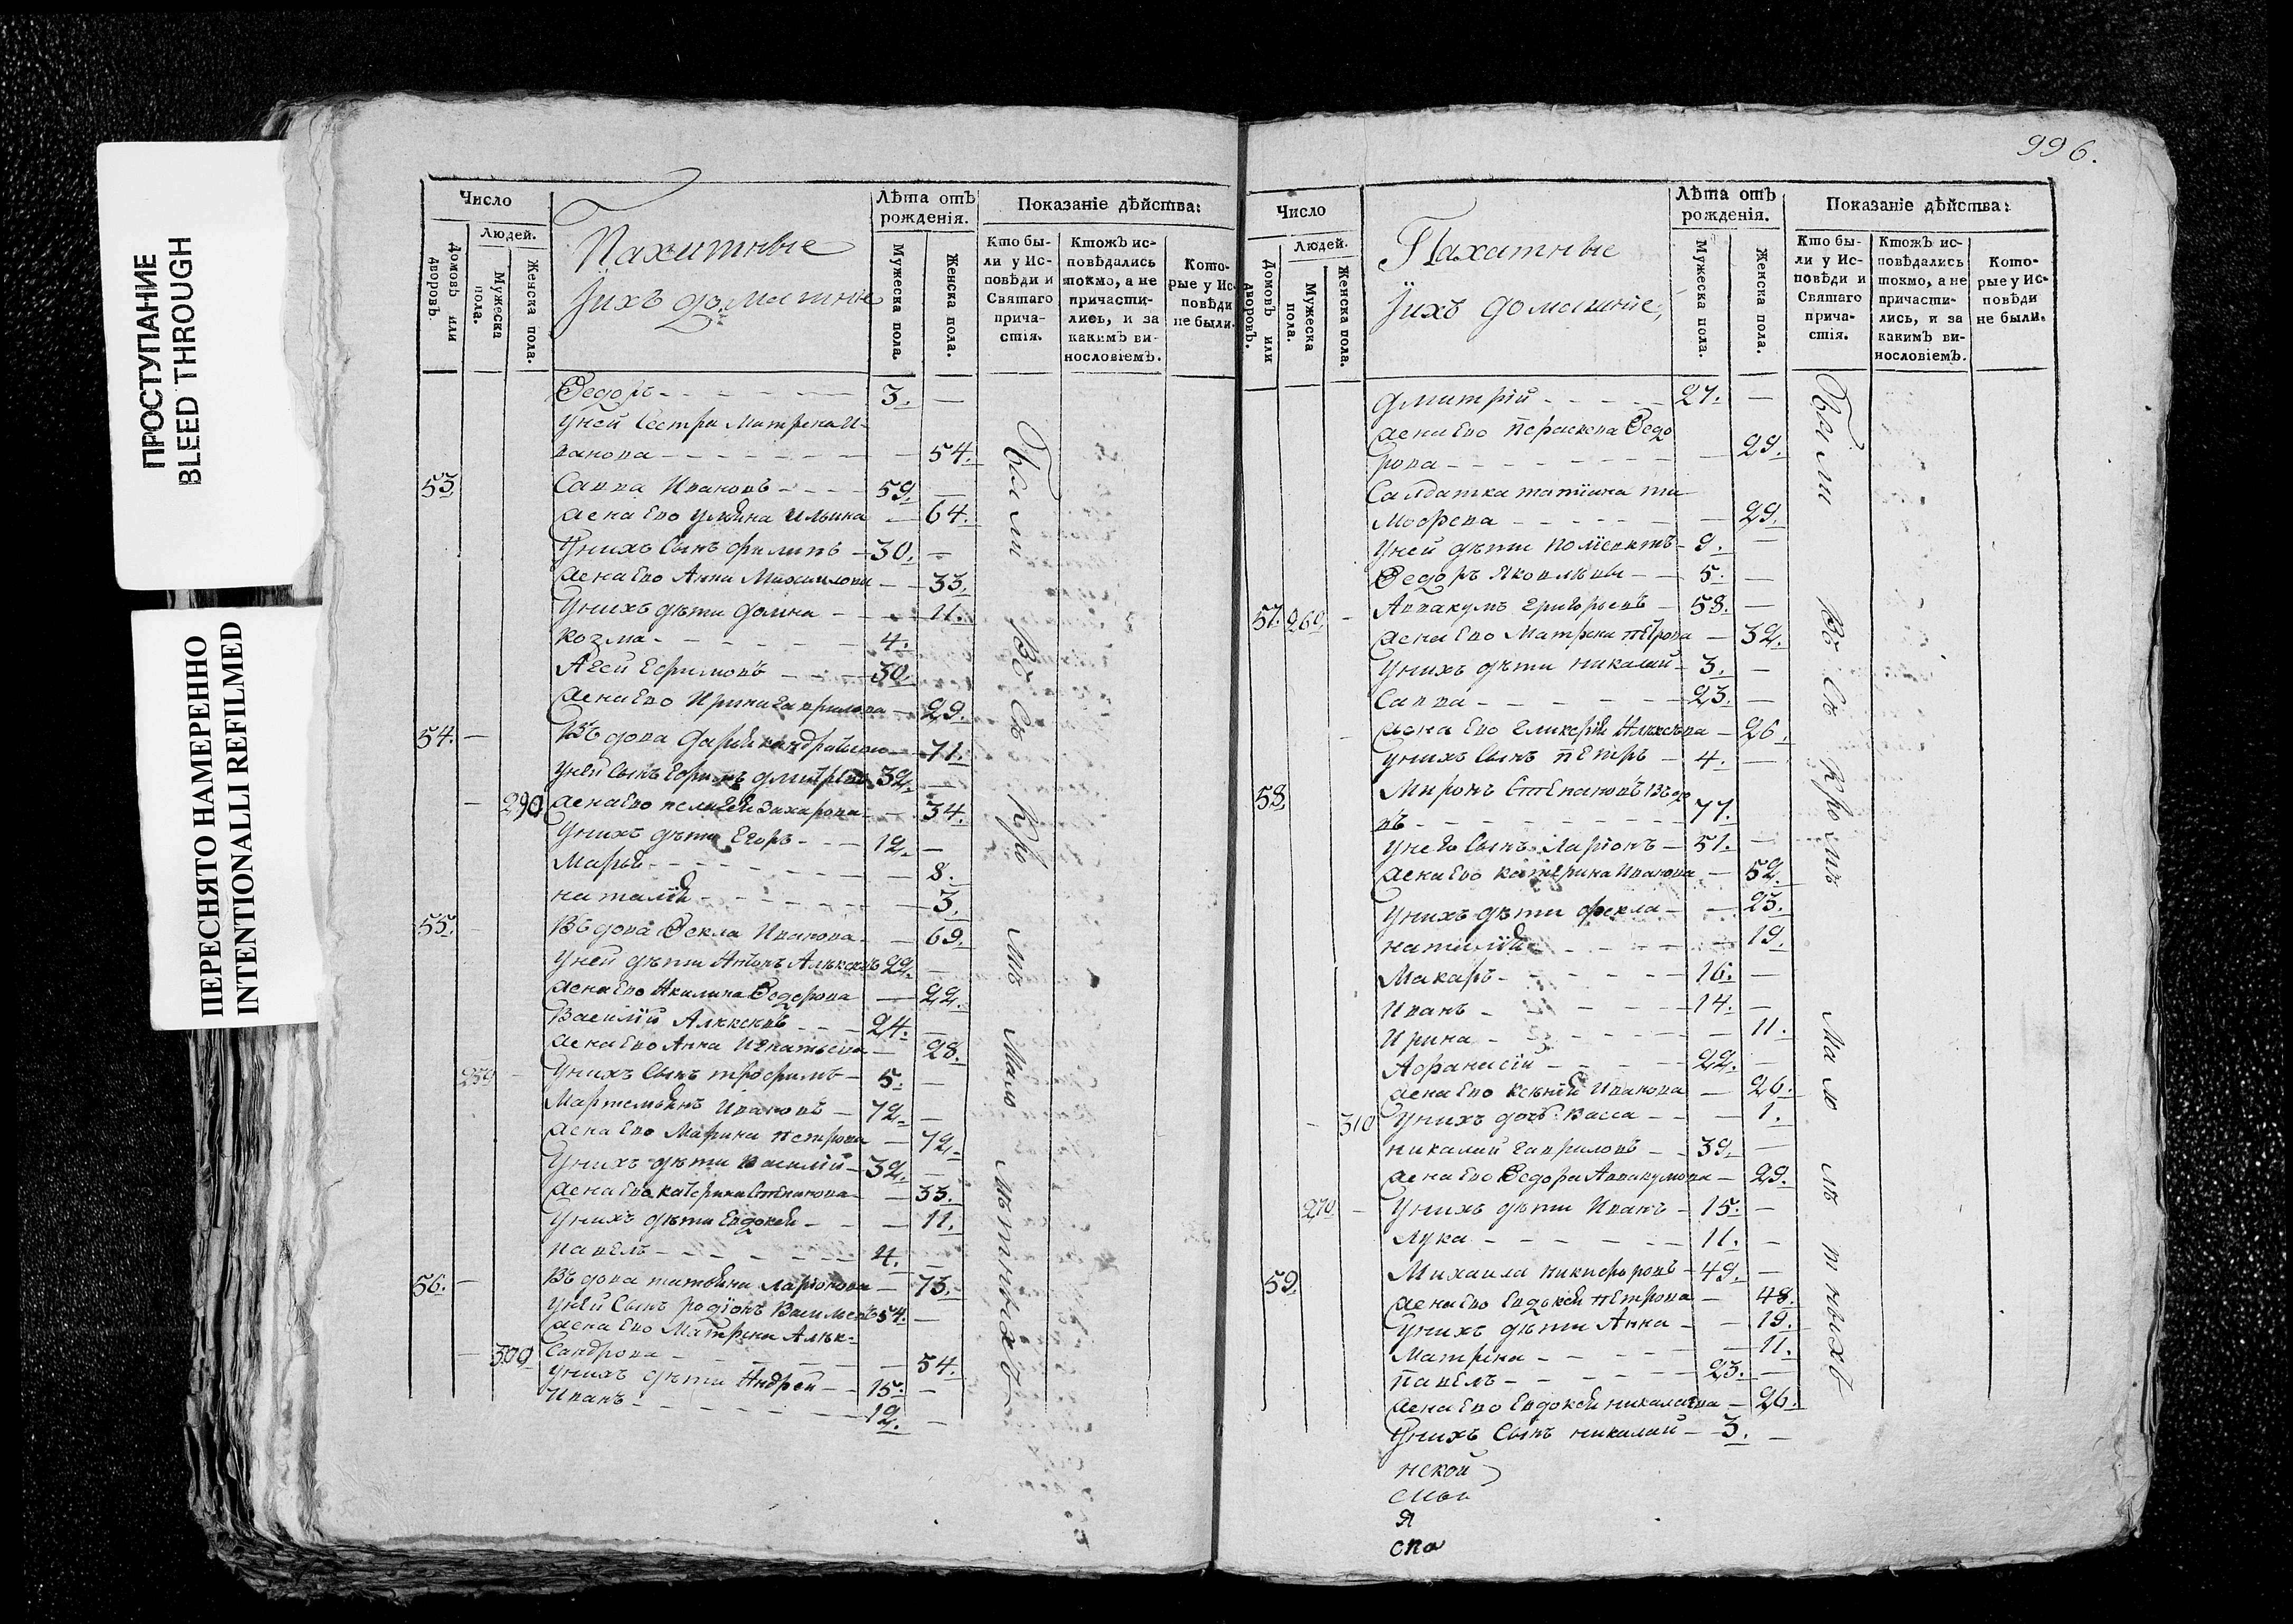 ПРОСТУПАНИЕ
BLEED THROUGH
ПЕРЕСНЯТО НАМЕРЕННО
INTENTIONALLI REFILMED
Число
Людей.
Домовъ или дворовъ.
Мужеска пола.
Женска пола.
Пахатные
Ӱихъ домашніе
Лѣта отъ рожденія.
Мужеска пола.
Женска пола.
Показаніе дѣйства:
Кто бы-
ли у Ис-
повѣди и
Святаго
прича-
стія.
Ктожъ ис-
повѣдались
токмо, а не
причасти-
лись, и за
какимъ ви-
нословіемъ.
Кото-
рые у Ис-
повѣди
не были.
Ѳедоръ 3.
Уней Сестра Матрена И-
ванова 54.
53. Савва Ивановъ 59.
жена Ево Ульяна Ильина 64.
Унихъ Сынъ филипъ 30.
жена Ево Анна Михаилова 33.
Унихъ дѣти домна 11.
козма 4.
Агей Ефимовъ 30.
жена Ево Ирина Гаврилова 29.
54. Въдова дарья кандратьева 71.
Уней Сынъ Ефимъ дмитріевъ 32.
290 жена Ево пелагея захарова 34.
Унихъ дѣти Егоръ 12.
Марья 8.
наталія 3.
55. Въдова Ѳекла Иванова 69.
Уней дѣти Алѣксеевъ 22.
жена Ево Акилина Ѳедорова 22.
Василій Алѣксеевъ 24.
жена Ево Анна Игнатьева 28.
259 Унихъ Сынъ трофимъ 5.
Мартемьянъ Ивановъ 72.
жена Ево Марина петрова 72.
Унихъ дѣти василій 32.
жена Ево катерина Степанова 33.
Унихъ дѣти Евдокея 11.
павелъ 4.
56. Въдова татьяна Ларіонова 73.
Уней Сынъ родіонъ Васильевъ 54.
жена Ево Матрена Алѣк-
300 Сандрова 54.
Унихъ дѣти Андрей 15.
Иванъ 12.
Были Въ Съ Кро мѣ Мало лѣтныхъ
996.
Число
Людей.
Домовъ или дворовъ.
Мужеска пола.
Женска пола.
Пахатные
Ӱихъ домашніе,
Лѣта отъ рожденія.
Мужеска пола.
Женска пола.
Показаніе дѣйства:
Кто бы-
ли у Ис-
повѣди и
Святаго
прича-
стія.
Ктожъ ис-
повѣдались
токмо, а не
причасти-
лись, и за
какимъ ви-
нословіемъ.
Кото-
рые у Ис-
повѣди
не были.
дмитрій 27.
жена Ево пераскева Ѳедо
рова 29.
Салдатка татіана ти
мофева 29.
Уней дѣти 9.
Ѳедоръ Яковлевы 5.
57. 260 Аввакумъ григорьевъ 58.
жена Ево Матрена петрова 32.
Унихъ дѣти никалай 3.
Савва 23.
жена Ево гликерія Алѣксѣева 26.
Унихъ Сынъ петръ 4.
58. Миронъ Степановъ Въдо
въ 77.
Унего Сынъ Ларіонъ 51.
жена Ево катерина Иванова 52.
Унихъ дѣти фекла 23.
наталія 19.
Макаръ 16.
Иванъ 14.
Ирина 11.
Афанасій 22.
жена Ево ксенія Иванова 26.
310 Унихъ дочь васса 1.
никалай гавриловъ 39.
жена Ево Ѳедора Аввакумова 29.
270 Унихъ дѣти Иванъ 15.
Лука 11.
59. Михаила никифоровъ 49.
жена Ево Евдокея петрова 48.
Унихъ дѣти Анна 19.
Матрена 11.
павелъ 23.
жена Ево Евдокея никалаева 26.
Унихъ Сынъ никалай 3.
Были Въ Съ Кро мѣ Мало лѣ тныхъ
нской
я
ска